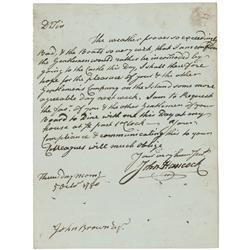 D Sir
The weather proves so exceeding
Bad, & the Boats so very wet, that I am
the Gentlemen would rather be incommoded by
going to the Castle this Day, I shall therefore
hope for the pleasure of you & the other
Gentlemen's Company on the Island some more
agreable day next week, I am to Request
the favr. of you & the other Gentlemen of your
Board to Dine with me this day at my
house at past o'Clock. Your
Compliance & communicating this to your
Colleagues will much oblige
Your
John Hancock
Thursday Morng
5 Octo. 1780
John Brown Esqr.